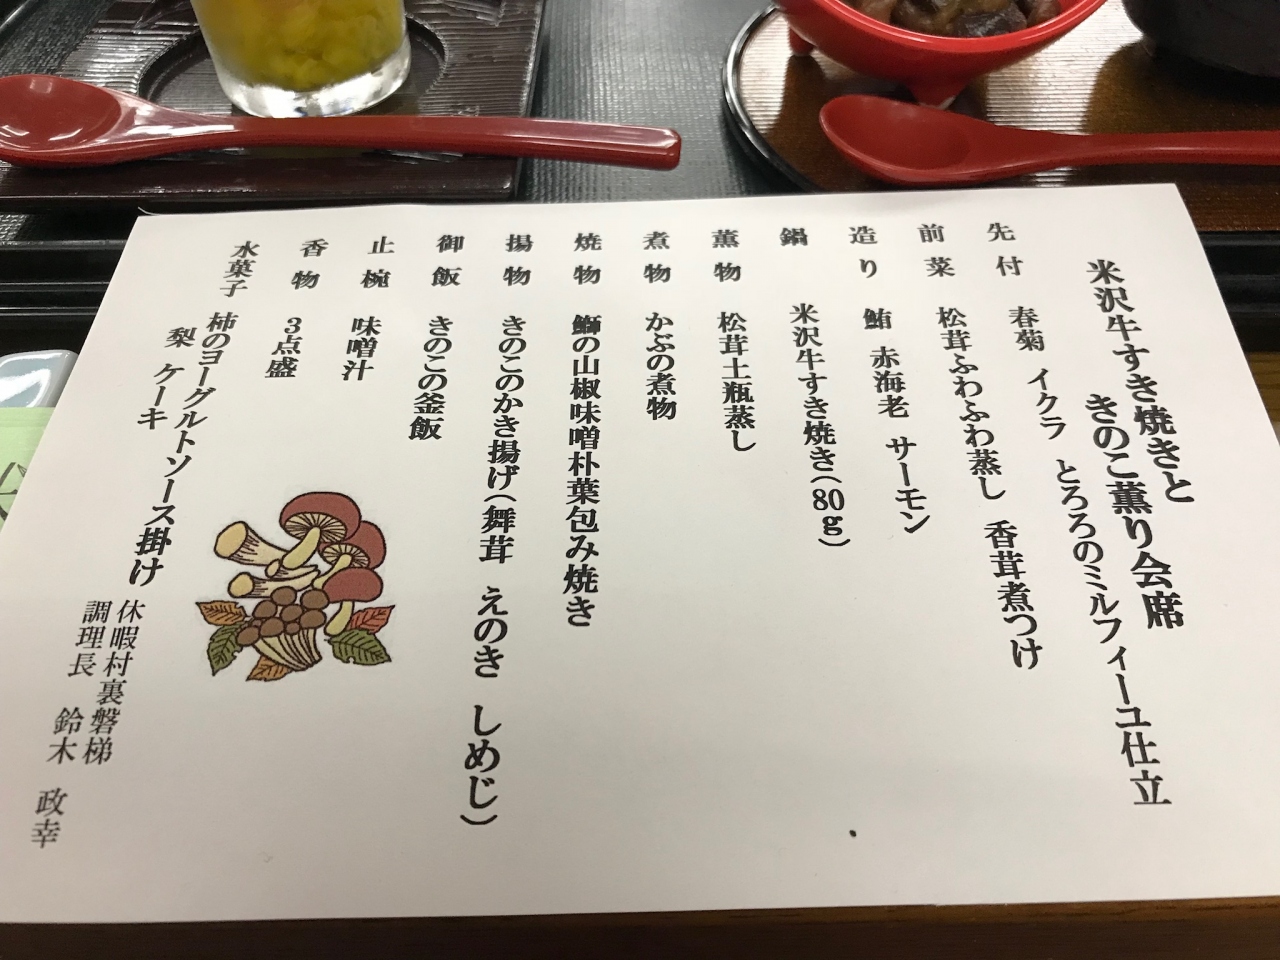 米沢牛すき焼きと
きのこ薫り会席
先付　春菊　イクラ　とろろのミルフィーユ仕立
前菜　松茸ふわふわ蒸し　香茸煮つけ
造り　鮪　赤海老　サーモン
鍋　米沢牛すき焼き(80g)
薫物　松茸土瓶蒸し
煮物　かぶの煮物
焼物　鰤の山椒味噌朴葉包み焼き
揚物　きのこのかき揚げ(舞茸　えのき　しめじ)
御飯　きのこの釜飯
止椀　味噌汁
香物　3点盛
水菓子　柿のヨーグルトソース掛け
梨　ケーキ
休暇村裏磐梯
調理長　鈴木　政幸